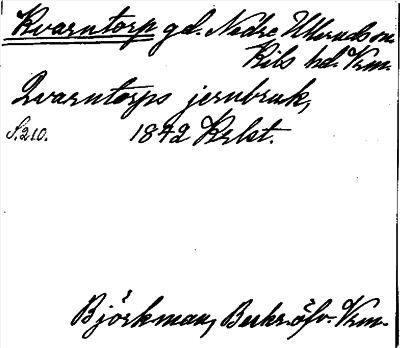 Kvarntorp gd. Nedre Ulleruds sn.
Kils hd. Vrm.
Qvarntorps jernbruk,
S.210. 1842 Krlst.
Björkman, Beskr. öfv. Vrm.